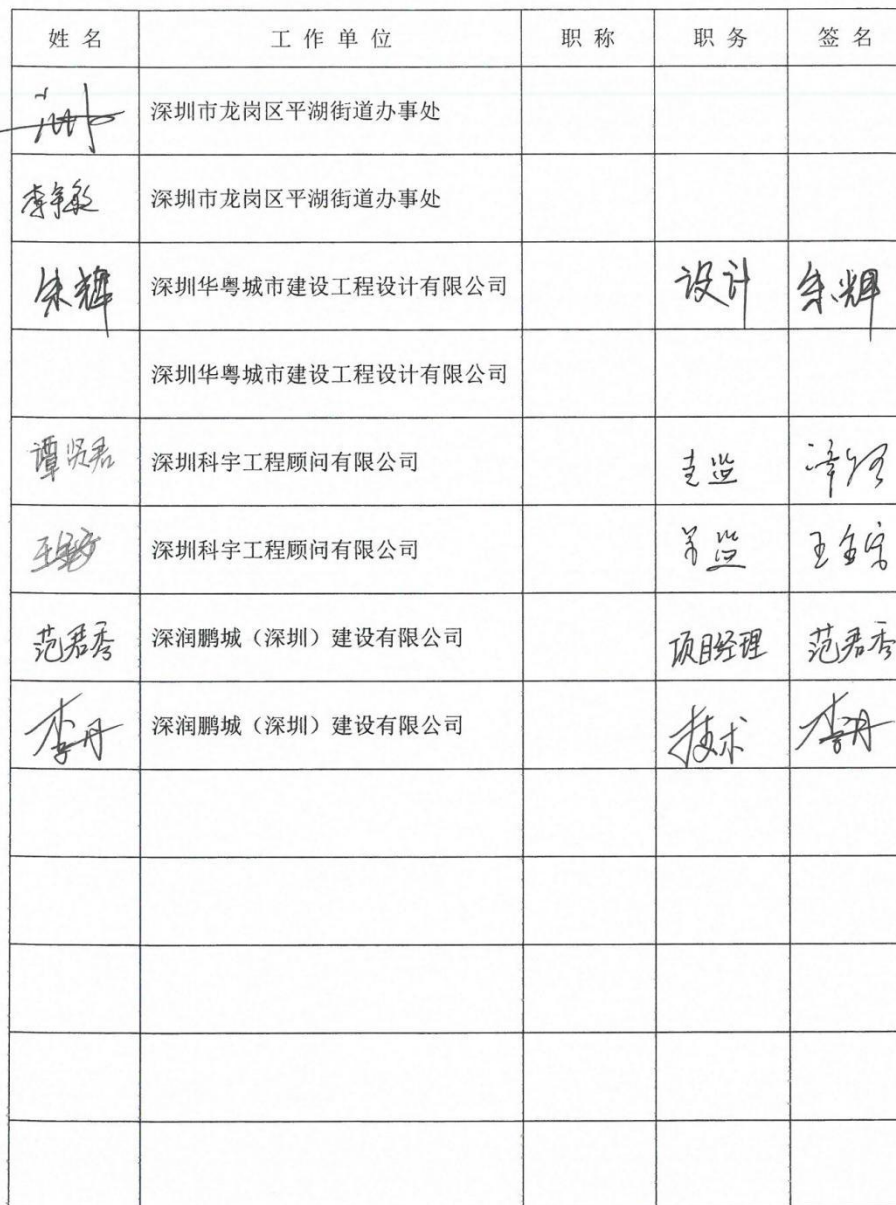 姓 名 工 作 单 位 职 称 职 务 签 名
深圳市龙岗区平湖街道办事处
深圳市龙岗区平湖街道办事处
朱辉 深圳华粤城市建设工程设计有限公司 设计 朱辉
深圳华粤城市建设工程设计有限公司
谭贤君 深圳科宇工程顾问有限公司
深圳科宇工程顾问有限公司
范君秀 深润鹏城（深圳）建设有限公司 项目经理 范君秀
李丹 深润鹏城（深圳）建设有限公司 技术 李丹